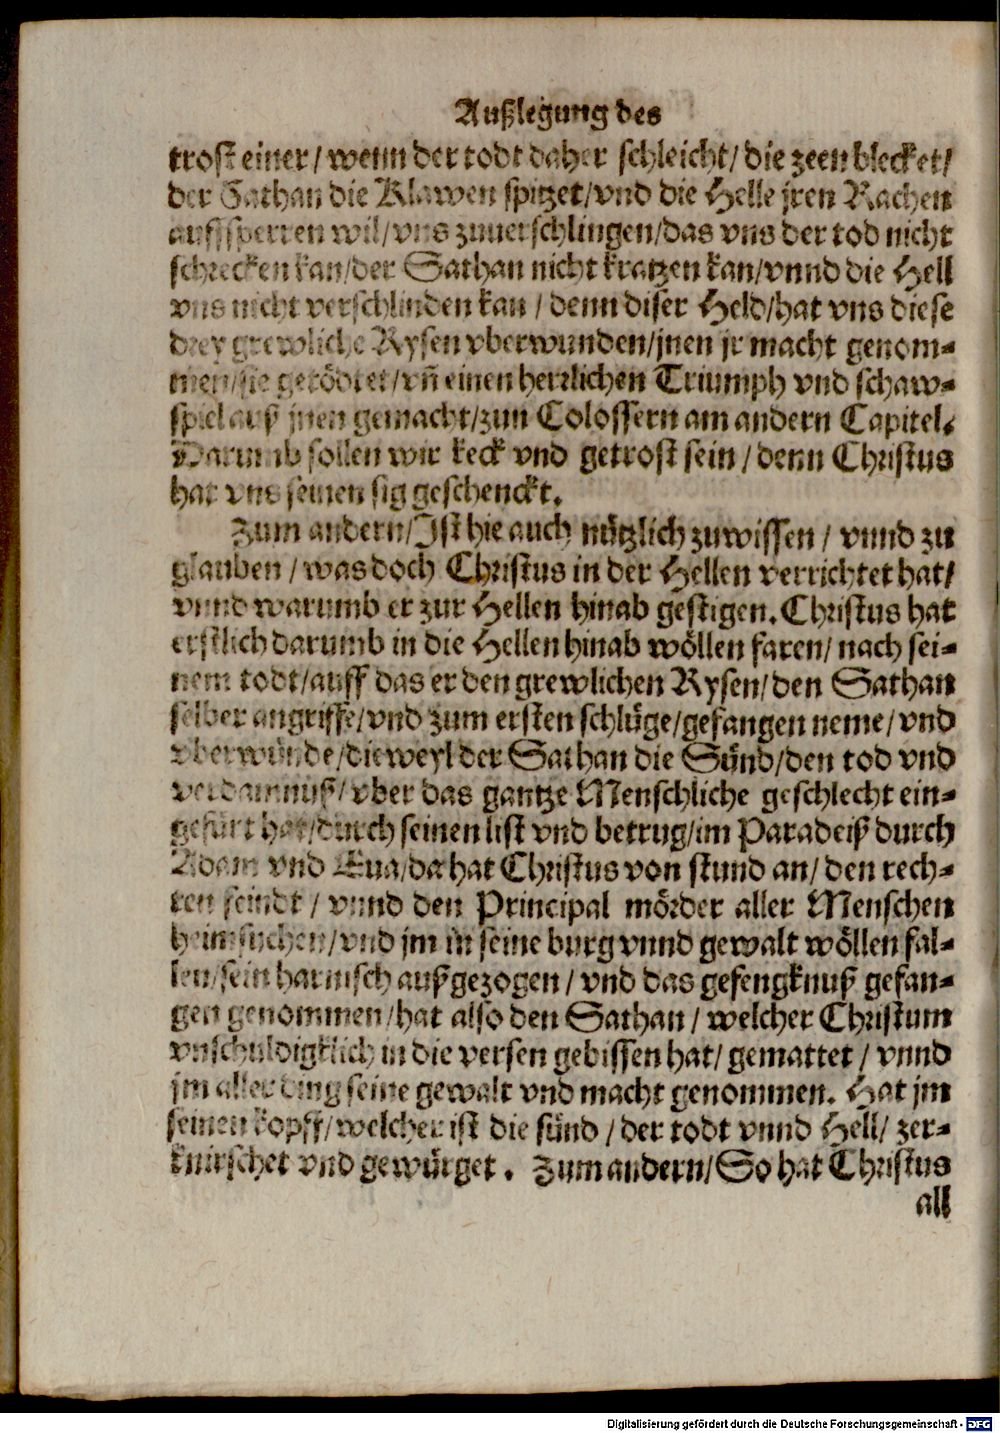 Außlegung des
trost einer / wenn der todt daher schleicht / die zeen blecket /
der Sathan die Klawen spitzet / vnd die Helle jren Rachen
auffsperren wil / vns zuuerschlingen / das vns der tod nicht
schrecken kan / der Sathan nicht kratzen kan / vnnd die Hell
vns nicht verschlinden kan / denn diser Held / hat vns diese
drey grewliche Rysen vberwunden / jnen jr macht genom-
men / sie getödtet / vñ einen herrlichen Triumph vnd schaw-
spiel auß jnen gemacht / zun Colossern am andern Capitel.
Darumb sollen wir keck vnd getrost sein / denn Christus
hat vns seinen sig geschenckt.
Zum andern / Ist hie auch nützlich zuwissen / vnnd zu
glauben / was doch Christus in der Hellen verrichtet hat /
vnnd warumb er zur Hellen hinab gestigen. Christus hat
erstlich darumb in die Hellen hinab wöllen faren / nach sei-
nem todt / auff das er den grewlichen Rysen / den Sathan
selber angriffe / vnd zum ersten schlüge / gefangen neme / vnd
vberwünde / dieweyl der Sathan die Sünd / den tod vnd
verdamnuß / vber das gantze Menschliche geschlecht ein-
gefürt hat / durch seinen list vnd betrug / im Paradeiß durch
Adam vnd Eua / da hat Christus von stund an / den rech-
ten feindt / vnnd den Principal mörder aller Menschen
heimsuchen / vnd jm in seine burg vnnd gewalt wöllen fal-
len / sein harnisch außgezogen / vnd das gefengknuß gefan-
gen genommen / hat also den Sathan / welcher Christum
vnschuldigklich in die versen gebissen hat / gemattet / vnnd
jm aller ding seine gewalt vnd macht genommen. Hat jm
seinen kopff / welcher ist die sünd / der todt vnnd Hell / zer-
knirschet vnd gewürget. Zum andern / So hat Christus
all
Digitalisierung gefördert durch die Deutsche Forschungsgemeinschaft - DFG